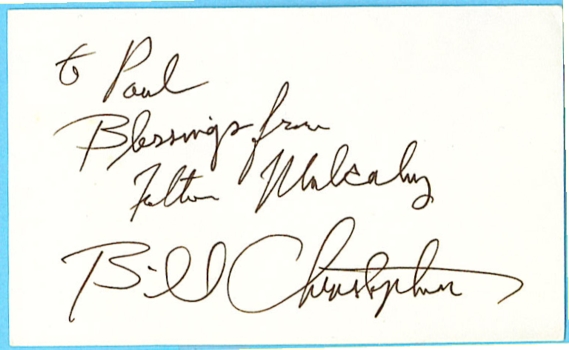 to Paul
Blessings from
Father Mulcahy
Bill Christopher